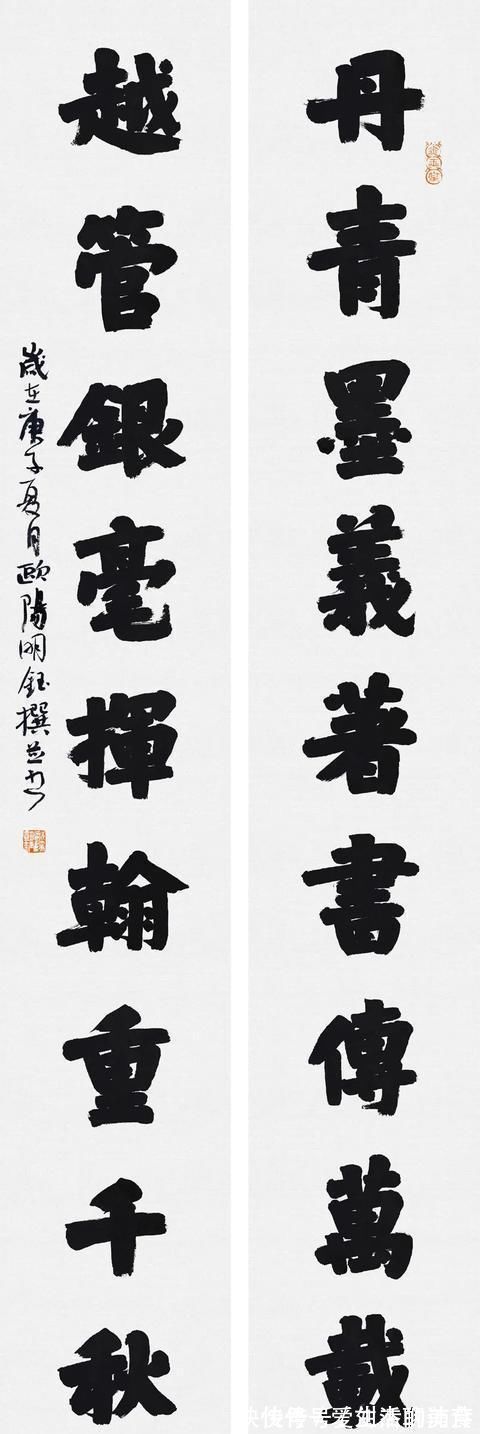 丹青墨義著書傳萬載
越管銀毫揮翰重千秋
歲在庚子夏月歐陽明鈺撰並書